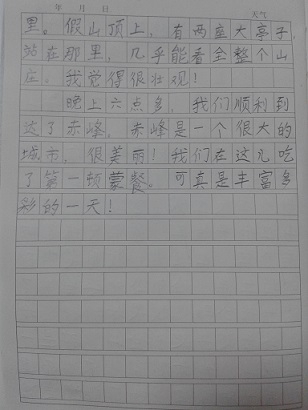 年 月 日 天气
里。假山顶上,有两座大亭子,
站在那里,几乎能看全整个山
庄。我觉得很壮观!
晚上六点多,我们顺利到
达了赤峰。赤峰是一个很大的
城市,很美丽!我们在这儿吃
了第一顿蒙餐。可真是丰富多
彩的一天!